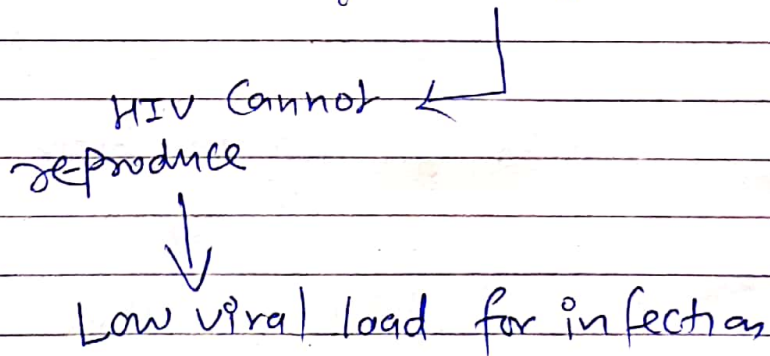 HIV Cannot
reproduce
Low viral load for infection